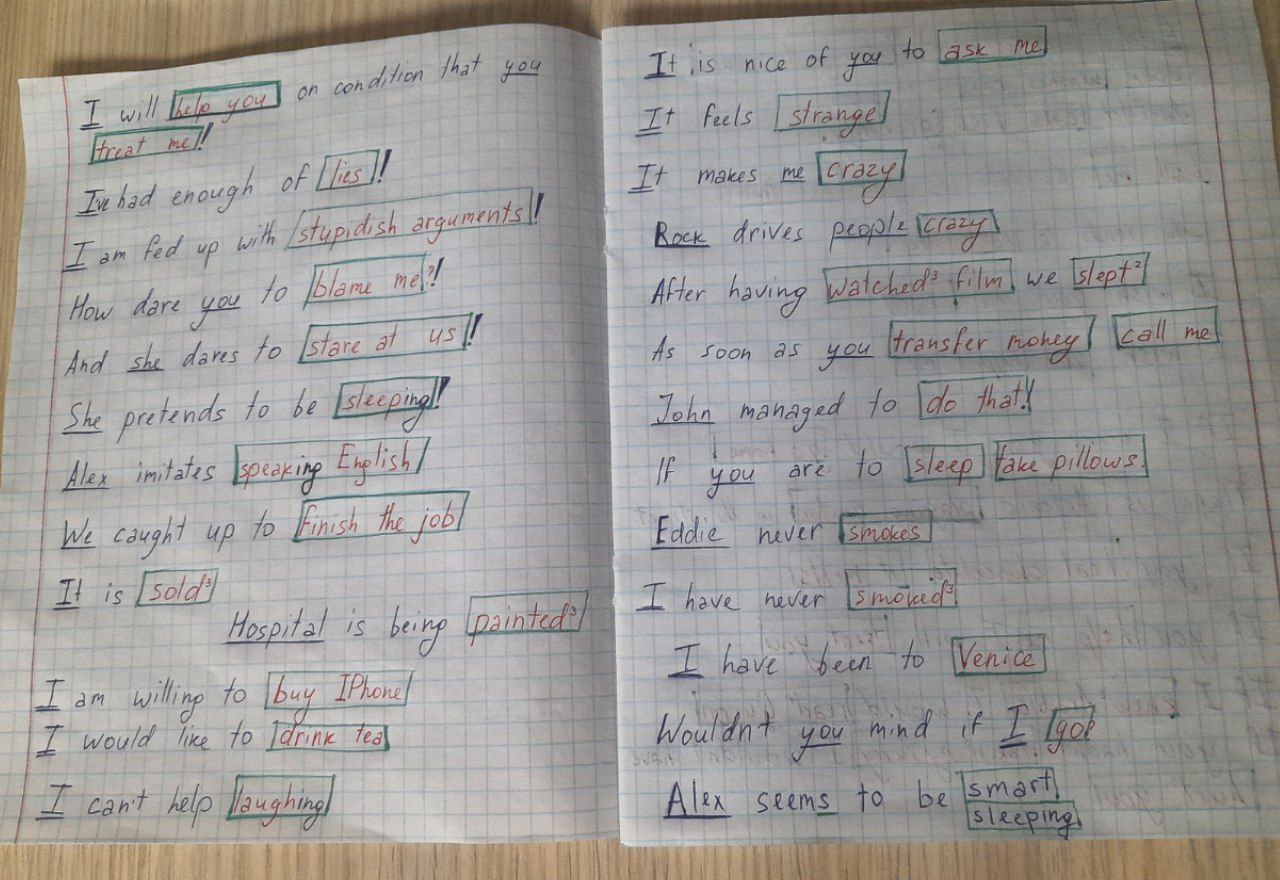 I will help you on condition that you
treat me!
I've had enough of lies!
I am fed up with stupidish arguments!
How dare you to blame me?!
And she dares to stare at us!
She pretends to be sleeping!
Alex imitates speaking English
We caught up to finish the job
It is sold³
Hospital is being painted³
I am willing to buy IPhone
I would like to drink tea
I can't help laughing
It is nice of you to ask me
It feels strange
It makes me crazy
Rock drives people crazy
After having watched³ film we slept²
As soon as you transfer money call me
John managed to do that!
If you are to sleep take pillows.
Eddie never smokes
I have never smoked³
I have been to Venice
Wouldn't you mind if I go?
Alex seems to be smart
sleeping